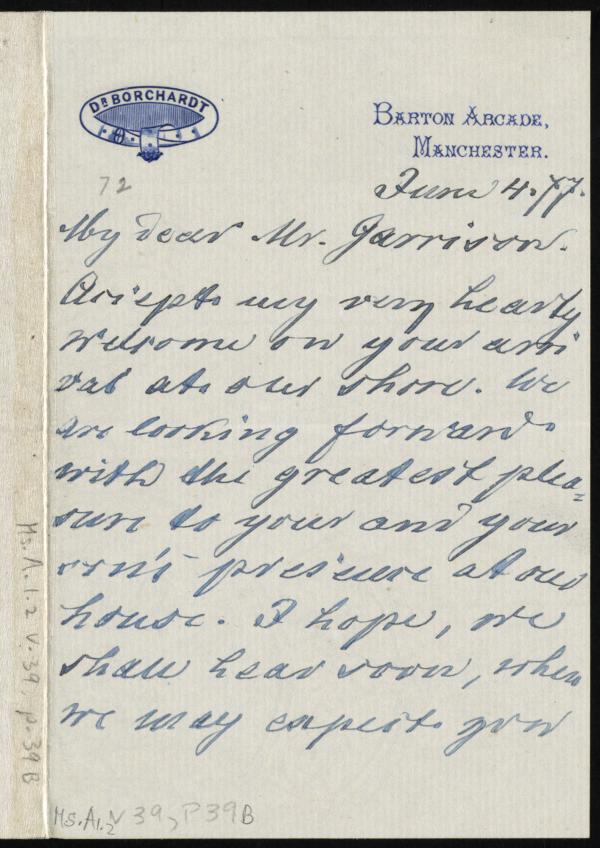 DR BORCHARDT
BARTON ARCADE,
MANCHESTER.
72
June 4. 77.
My dear Mr. Garrison.
Accept my very hearty
welcome on your arri
val at our shore. We
are looking forward
with the greatest plea=
sure to your and your
son's presence at our
house. I hope, we
shall hear soon, when
we may expect you
Ms.A.1.2 v.39, p.39B
Ms.A.1.2 V 39, P39B